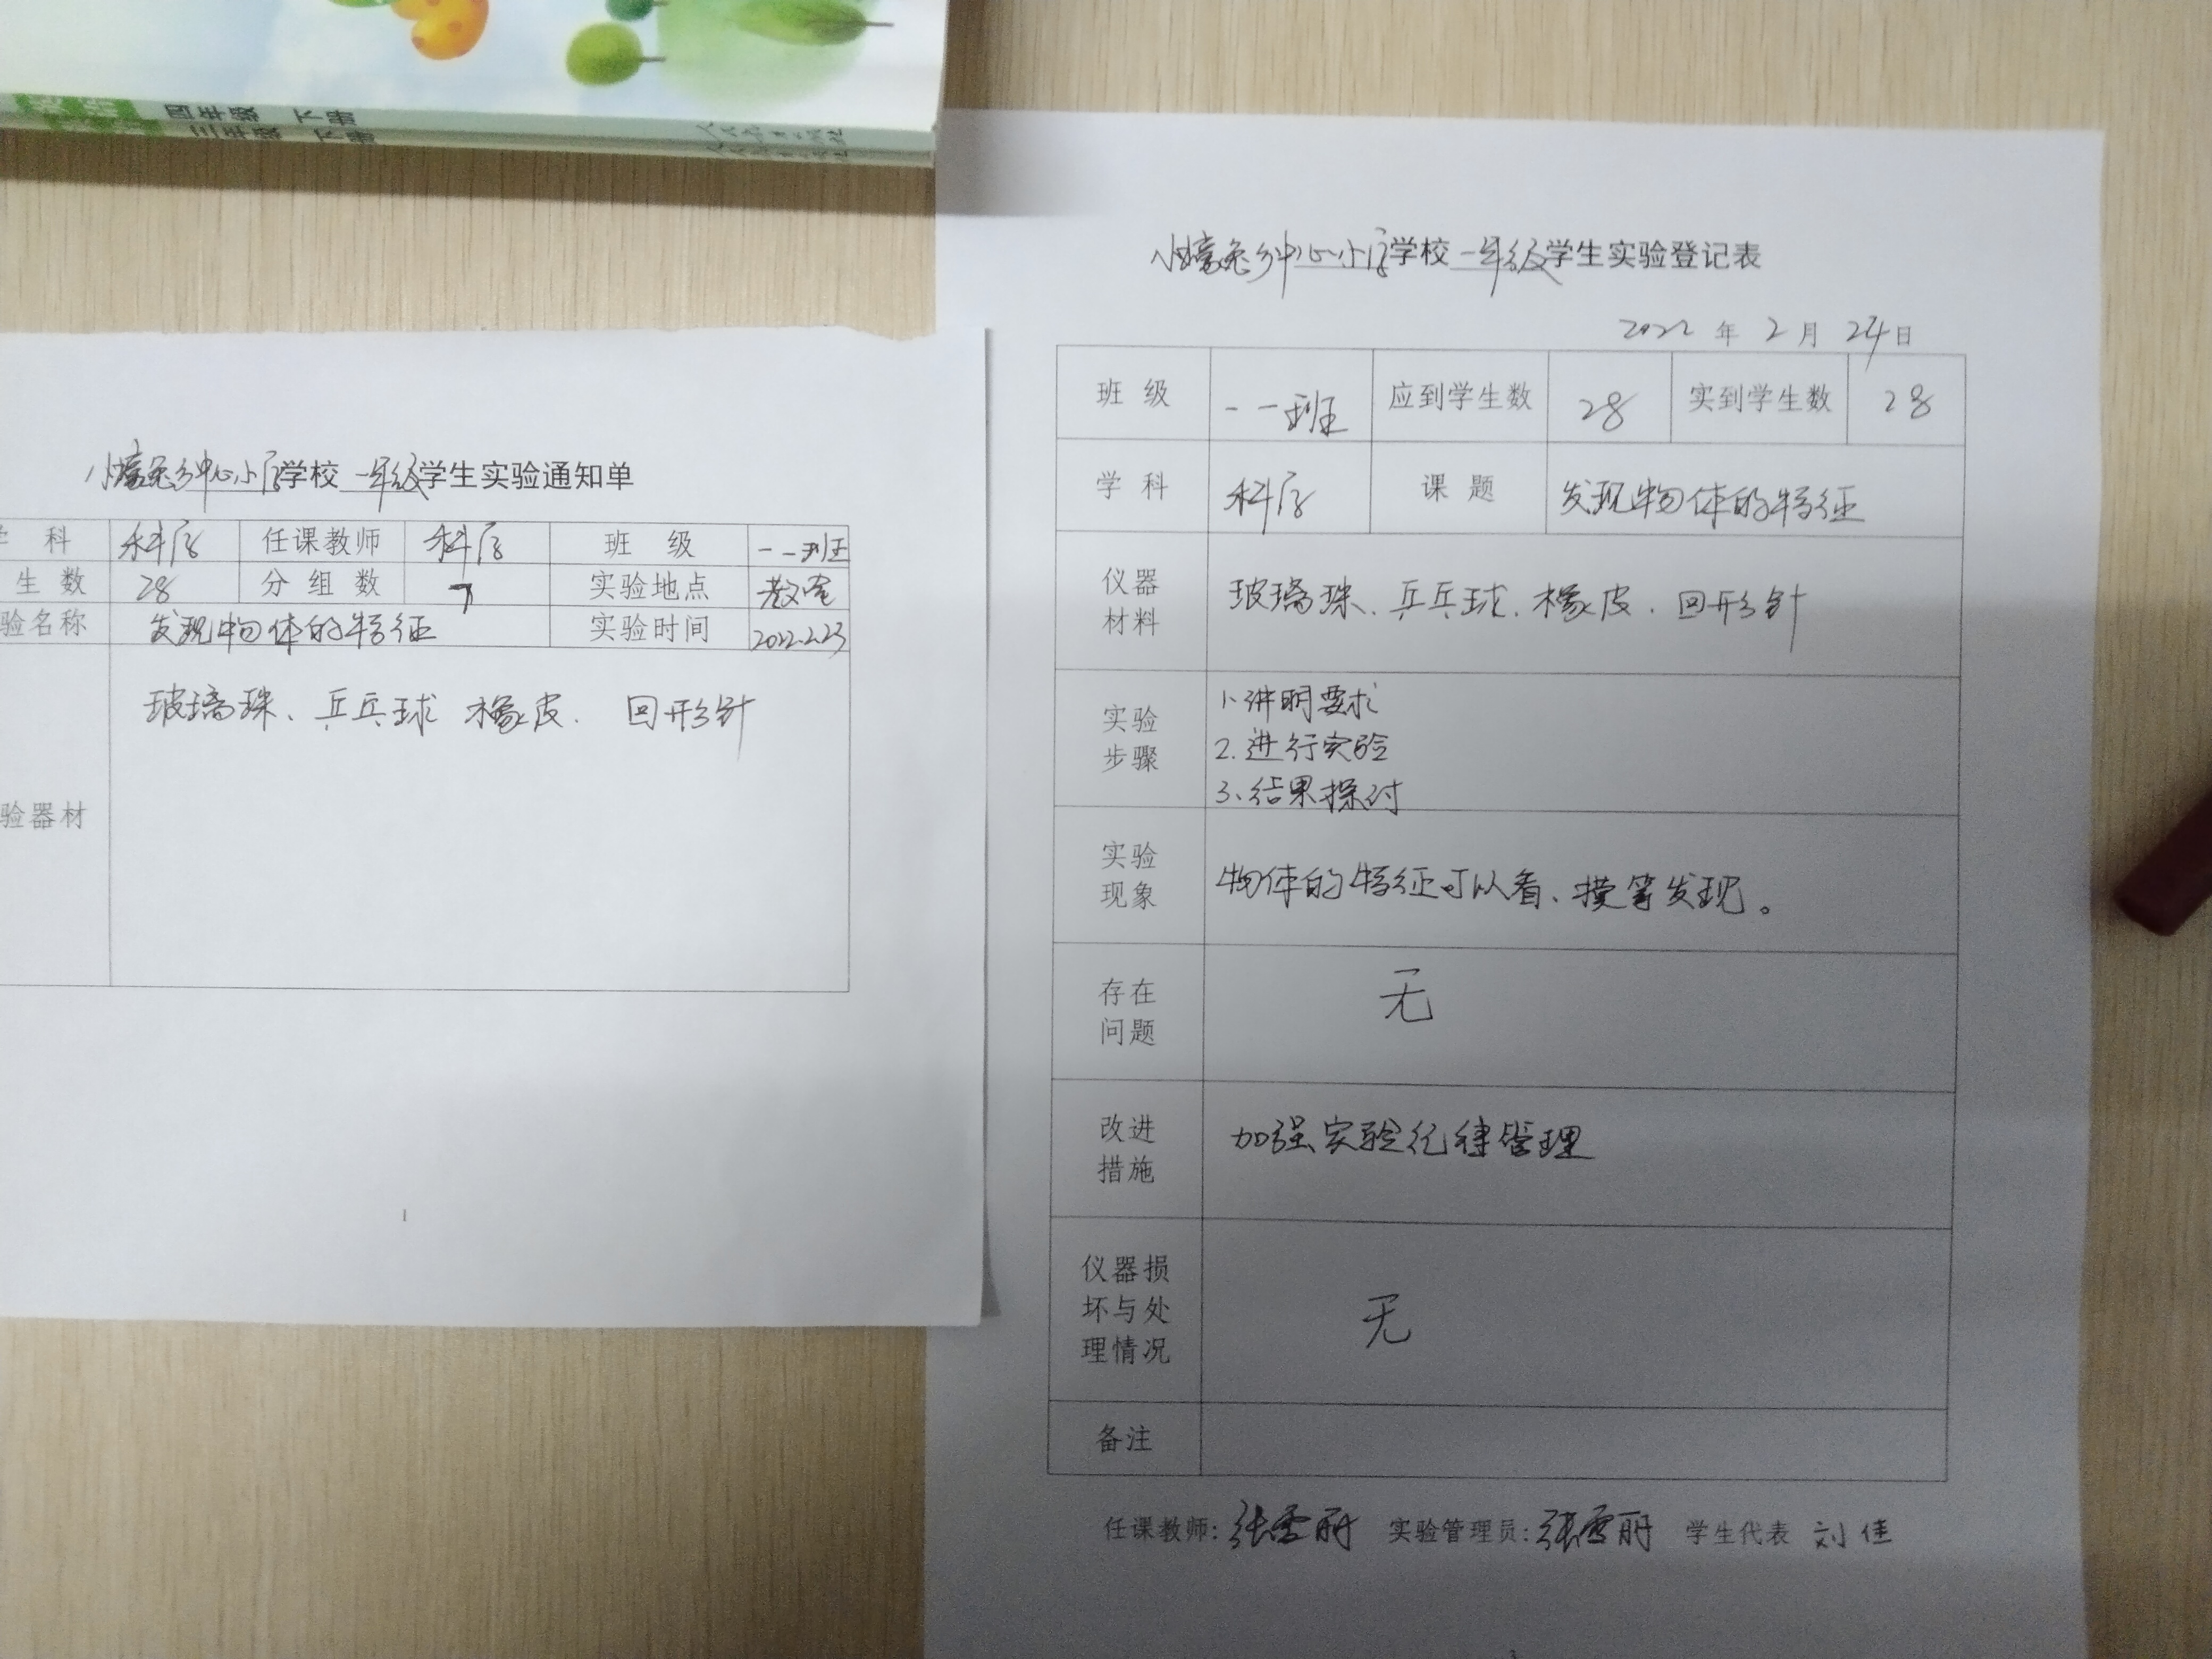 四年级 下册
三年级 下册
小壕兔乡中心小学学校一年级学生实验通知单
科 科学 任课教师 科学 班 级 一一班
生 数 28 分 组 数 7 实验地点 教室
验名称 发现物体的特征 实验时间 2022.2.23
验器材 玻璃珠、乒乓球 橡皮. 回形针
1
小壕兔乡中心小学学校一年级学生实验登记表
2022年2月24日
班 级 一一班 应到学生数 28 实到学生数 28
学 科 科学 课 题 发现物体的特征
仪器
材料
玻璃珠、乒乓球、橡皮. 回形针
实验
步骤
1、讲明要求
2. 进行实验
3、结果探讨
实验
现象
物体的特征可以看、摸等发现。
存在
问题
无
改进
措施
加强实验纪律管理
仪器损
坏与处
理情况
无
备注
任课教师:张雪丽 实验管理员:张雪丽 学生代表 刘佳